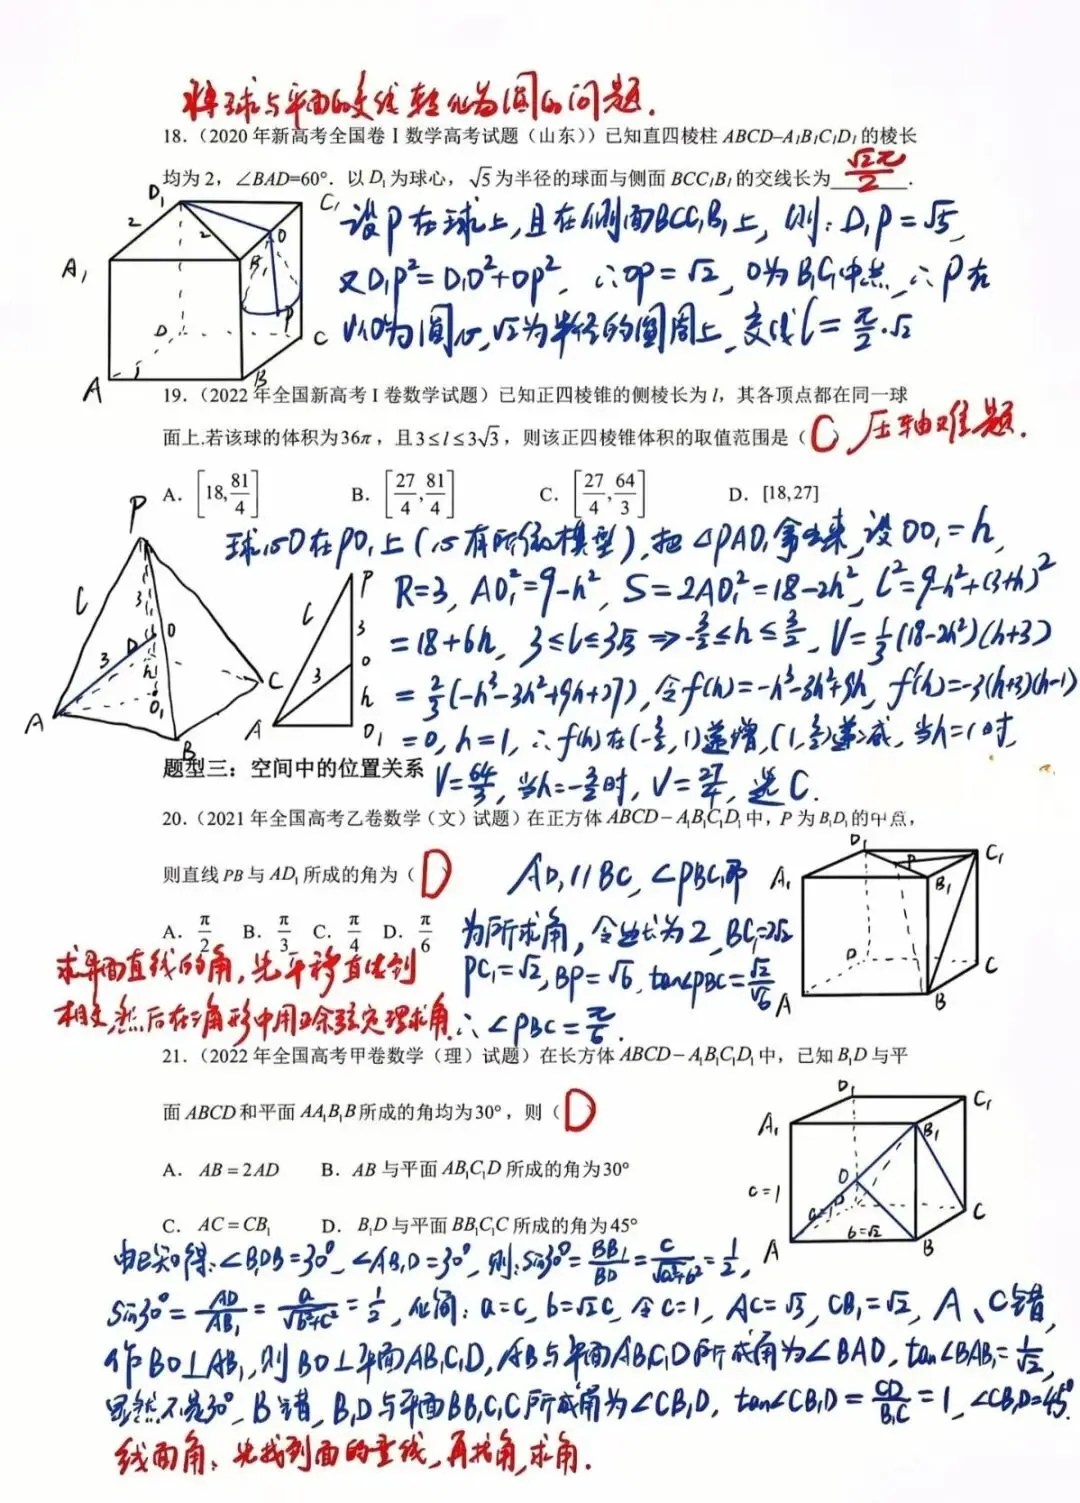 将球与平面的交线转化为圆的问题.
18.（2020年新高考全国卷Ⅰ数学高考试题（山东））已知直四棱柱ABCD–A₁B₁C₁D₁的棱长
均为2，∠BAD=60°．以D₁为球心，√5为半径的球面与侧面BCC₁B₁的交线长为 √2π/2 ．
设P在球上,且在侧面BCC₁B₁上, 则: D₁P=√5,
又D₁P²=D₁O²+OP², ∴OP=√2, O为B₁C₁中点, ∴P在
以O为圆心,√2为半径的圆周上, 交线l=π/2·√2
D₁ C₁ 2 2 O A₁ B₁ P D C A B
19.（2022年全国新高考Ⅰ卷数学试题）已知正四棱锥的侧棱长为l，其各顶点都在同一球
面上.若该球的体积为36π，且3≤l≤3√3，则该正四棱锥体积的取值范围是（ C ） 压轴难题.
A．[18,81/4] B．[27/4,81/4] C．[27/4,64/3] D．[18,27]
球心O在PO₁上( 模型), 把△PAO₁拿出来, 设OO₁=h,
R=3, AO₁²=9-h², S=2AO₁²=18-2h², l²=9-h²+(3+h)²
=18+6h, 3≤l≤3√3 ⇒ -3/2≤h≤3/2, V=1/3(18-2h²)(h+3)
=2/3(-h³-3h²+9h+27), 令f(h)=-h³-3h²+9h, f'(h)=-3(h+3)(h-1)
=0, h=1, ∴f(h)在(-3/2,1)递增,(1,3/2)递减, 当h=1时,
V=64/3, 当h=-3/2时, V=27/4, 选C.
P l 3 O 3 h O₁ A B C
P l 3 3 O h A O₁
题型三：空间中的位置关系
20.（2021年全国高考乙卷数学（文）试题）在正方体ABCD–A₁B₁C₁D₁中，P为B₁D₁的中点，
则直线PB与AD₁所成的角为（ D
A．π/2 B．π/3 C．π/4 D．π/6
AD₁//BC₁, ∠PBC₁即
为所求角, 令边长为2, BC₁=2√2
PC₁=√2, BP=√6, tan∠PBC₁=√2/√6
∴∠PBC₁=π/6.
D₁ C₁ P A₁ B₁ D C A B
求异面直线的角, 先平移直线到
相交,然后在三角形中用正余弦定理求角
21.（2022年全国高考甲卷数学（理）试题）在长方体ABCD–A₁B₁C₁D₁中，已知B₁D与平
面ABCD和平面AA₁B₁B所成的角均为30°，则（ D
A．AB=2AD B．AB与平面AB₁C₁D所成的角为30°
C．AC=CB₁ D．B₁D与平面BB₁C₁C所成的角为45°
D₁ C₁ A₁ B₁ O c=1 D a=1 C b=√2 A B
由已知得: ∠B₁DB=30°, ∠AB₁D=30°, 则:sin30°=BB₁/BD=c/√(a²+b²)=1/2,
sin30°=AD/AB₁=a/√(b²+c²)=1/2, 化简: a=c, b=√2c, 令c=1, AC=√3, CB₁=√2, A、C错,
作BO⊥AB₁,则BO⊥平面AB₁C₁D, AB与平面AB₁C₁D所成角为∠BAO, tan∠BAB₁=1/√2,
显然不是30°, B错, B₁D与平面BB₁C₁C所成角为∠CB₁D, tan∠CB₁D=CD/B₁C=1, ∠CB₁D=45°.
线面角: 先找到面的垂线, 再找角,求角.